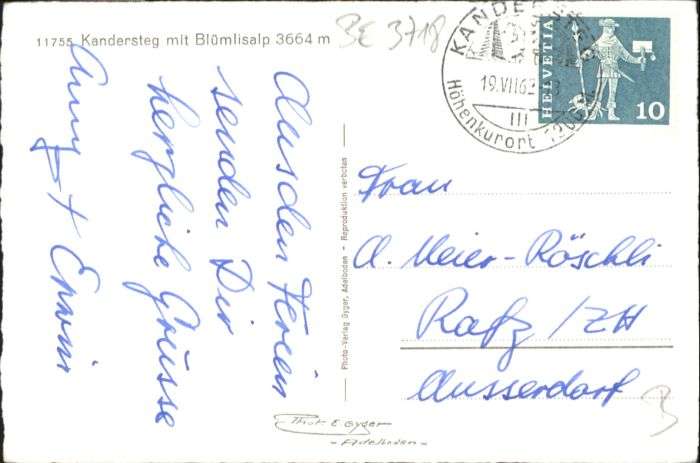 11755 Kandersteg mit Blümlisalp 3664 m
BE 3718
KANDERSTEG
19.VII.62
III
Höhenkurort 1200 M
HELVETIA
10
Aus den Ferien
senden Dir
herzliche Grüsse
Anny + Erwin
Photo-Verlag Gyger, Adelboden - Reproduktion verboten
Frau
A. Meier-Röschli
Rafz / ZH
Ausserdorf
Phot. E. Gyger
- Adelboden -